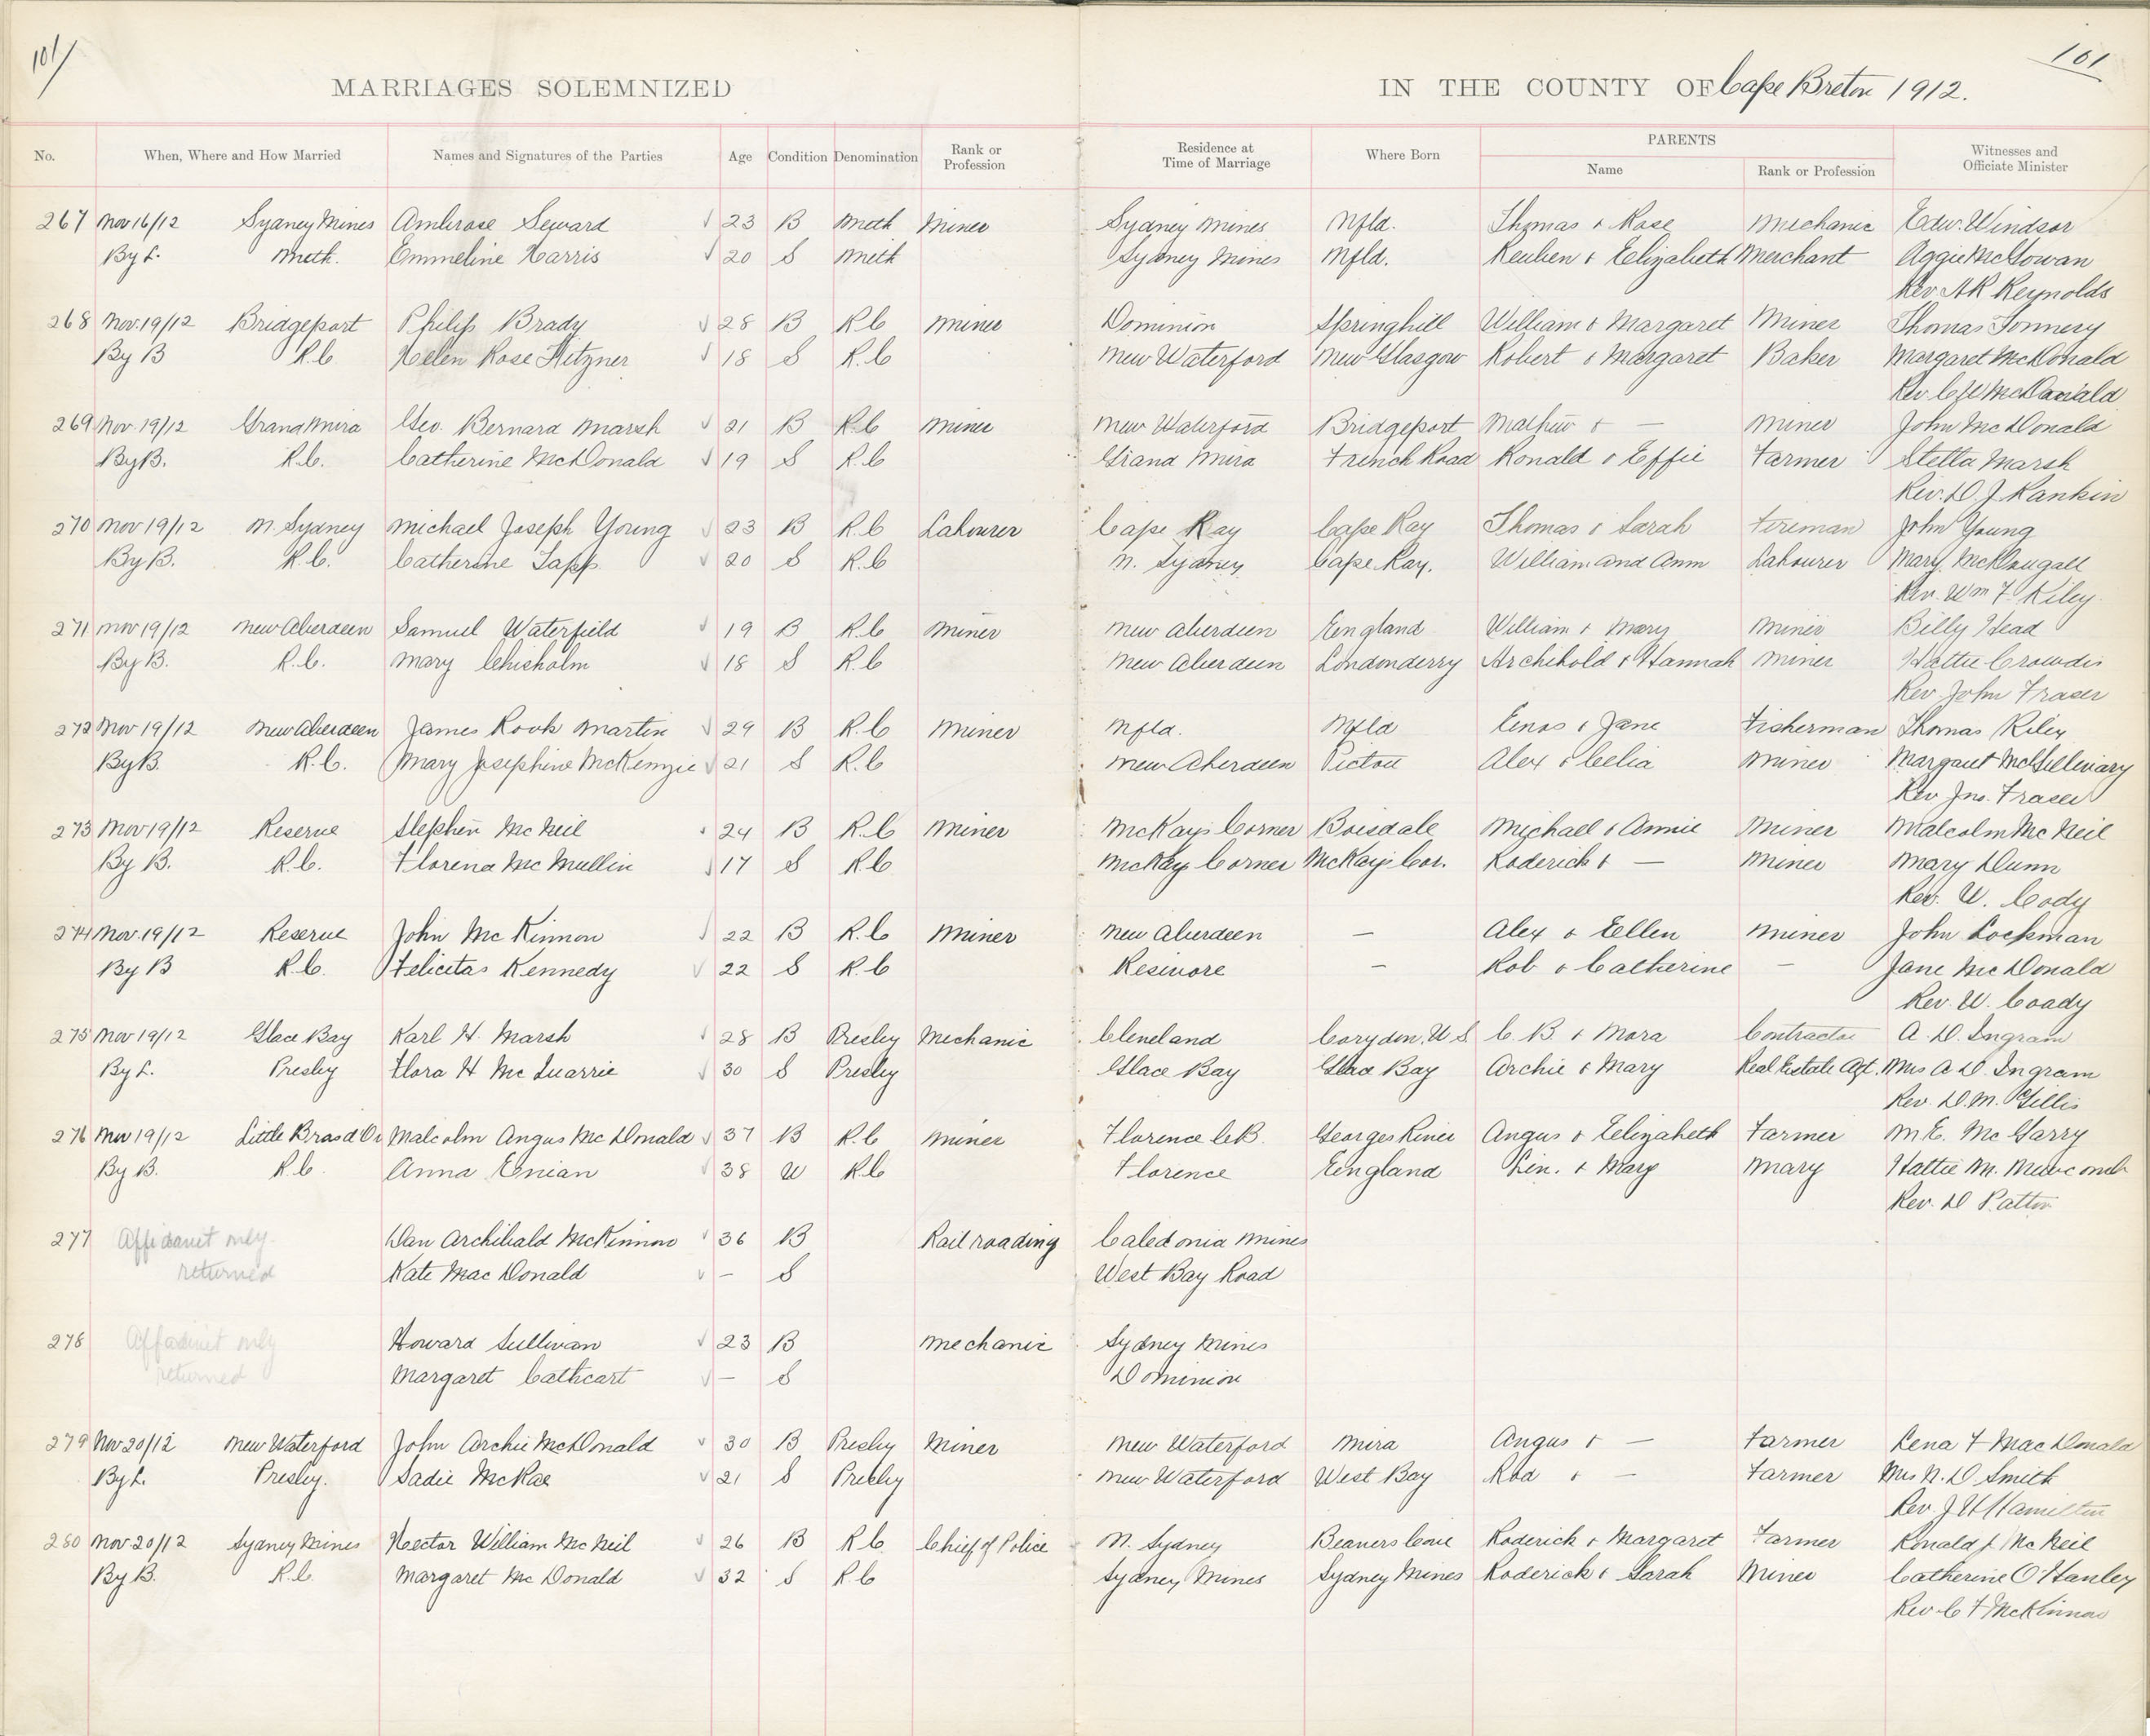 101/
101
MARRIAGES SOLEMNIZED IN THE COUNTY OF Cape Breton 1912.
No. When, Where and How Married Names and Signatures of the Parties Age Condition Denomination Rank or Profession Residence at Time of Marriage Where Born PARENTS Name Rank or Profession Witnesses and Officiate Minister
267 Nov 16/12 Sydney Mines Ambrose Seward √ 23 B Meth Miner Sydney Mines Nfld. Thomas & Rose Mechanic Edw. Windsor
By L. Meth. Emmeline Harris √ 20 S Meth Sydney Mines Nfld. Reuben & Elizabeth Merchant Aggie McGowan
Rev. A R Reynolds
268 Nov. 19/12 Bridgeport Philip Brady √ 28 B R.C Miner Dominion Springhill William & Margaret Miner Thomas Tonnery
By B R.C. Helen Rose Hitzner √ 18 S R.C New Waterford New Glasgow Robert & Margaret Baker Margaret McDonald
Rev. C W McDonald
269 Nov. 19/12 Grand Mira Geo. Bernard Marsh √ 21 B R.C Miner New Waterford Bridgeport Mathew & — Miner John McDonald
By B. R.C. Catherine McDonald √ 19 S R.C Grand Mira French Road Ronald & Effie Farmer Stella Marsh
Rev. D. J. Rankin
270 Nov 19/12 N. Sydney Michael Joseph Young √ 23 B R.C Labourer Cape Ray Cape Ray Thomas & Sarah Fireman John Young
By B. R.C. Catherine Tapp √ 20 S R.C N. Sydney Cape Ray. William and Ann Labourer Mary McDougall
Rev. Wm F. Kiley
271 Nov 19/12 New Aberdeen Samuel Waterfield √ 19 B R.C Miner New Aberdeen England William & Mary Miner Billy Head
By B. R.C. Mary Chisholm √ 18 S R.C New Aberdeen Londonderry Archibold & Hannah Miner Hattie Crowdis
Rev. John Fraser
272 Nov 19/12 New Aberdeen James Rook Martin √ 29 B R.C Miner Nfld. Nfld Enos & Jane Fisherman Thomas Riley
By B. R.C. Mary Josephine McKenzie √ 21 S R.C New Aberdeen Pictou Alex & Celia Miner Margaret McGillivary
Rev Jno. Fraser
273 Nov 19/12 Reserve Stephen McNeil √ 24 B R.C Miner McKays Corner Boisdale Michael & Annie Miner Malcolm McNeil
By B. R.C. Florena McMullin √ 17 S R.C McKays Corner McKays Cor. Roderick & — Miner Mary Dunn
Rev. W. Cody
274 Nov. 19/12 Reserve John McKinnon √ 22 B R.C Miner New Aberdeen — Alex & Ellen Miner John Lockman
By B R.C. Felicitas Kennedy √ 22 S R.C Resivore — Rob & Catherine — Jane McDonald
Rev. W. Coady
275 Nov 19/12 Glace Bay Karl H. Marsh √ 28 B Presby Mechanic Cleveland Corydon, U S. C. B. & Mora Contractor A. D. Ingram
By L. Presby Flora H McQuarrie √ 30 S Presby Glace Bay Glace Bay Archie & Mary Real Estate Agt. Mrs A D. Ingram
Rev. D. M. Gillis
276 Nov 19/12 Little Bras d'Or Malcolm Angus McDonald √ 37 B R.C Miner Florence C.B. Georges River Angus & Elizabeth Farmer M. E. McGarry
By B. R.C. Anna Enian √ 38 W R.C Florence England Lin. & Mary Mary Hattie M. Newcomb
Rev. D Patton
277 Affidavit only Dan Archibald McKinnon √ 36 B Railroading Caledonia Mines
returned Kate MacDonald √ — S West Bay Road
278 Affidavit only Howard Sullivan √ 23 B Mechanic Sydney Mines
returned Margaret Cathcart √ — S Dominion
279 Nov 20/12 New Waterford John Archie McDonald √ 30 B Presby Miner New Waterford Mira Angus & — Farmer Lena F MacDonald
By L. Presby. Sadie McRae √ 21 S Presby New Waterford West Bay Rod & — Farmer Mrs N. D. Smith
Rev. J H Hamilton
280 Nov. 20/12 Sydney Mines Hector William McNeil √ 26 B R.C. Chief of Police N. Sydney Beavers Cove Roderick & Margaret Farmer Ronald J. McNeil
By B. R.C. Margaret McDonald √ 32 S R.C Sydney Mines Sydney Mines Roderick & Sarah Miner Catherine O'Hanley
Rev. C F McKinnon